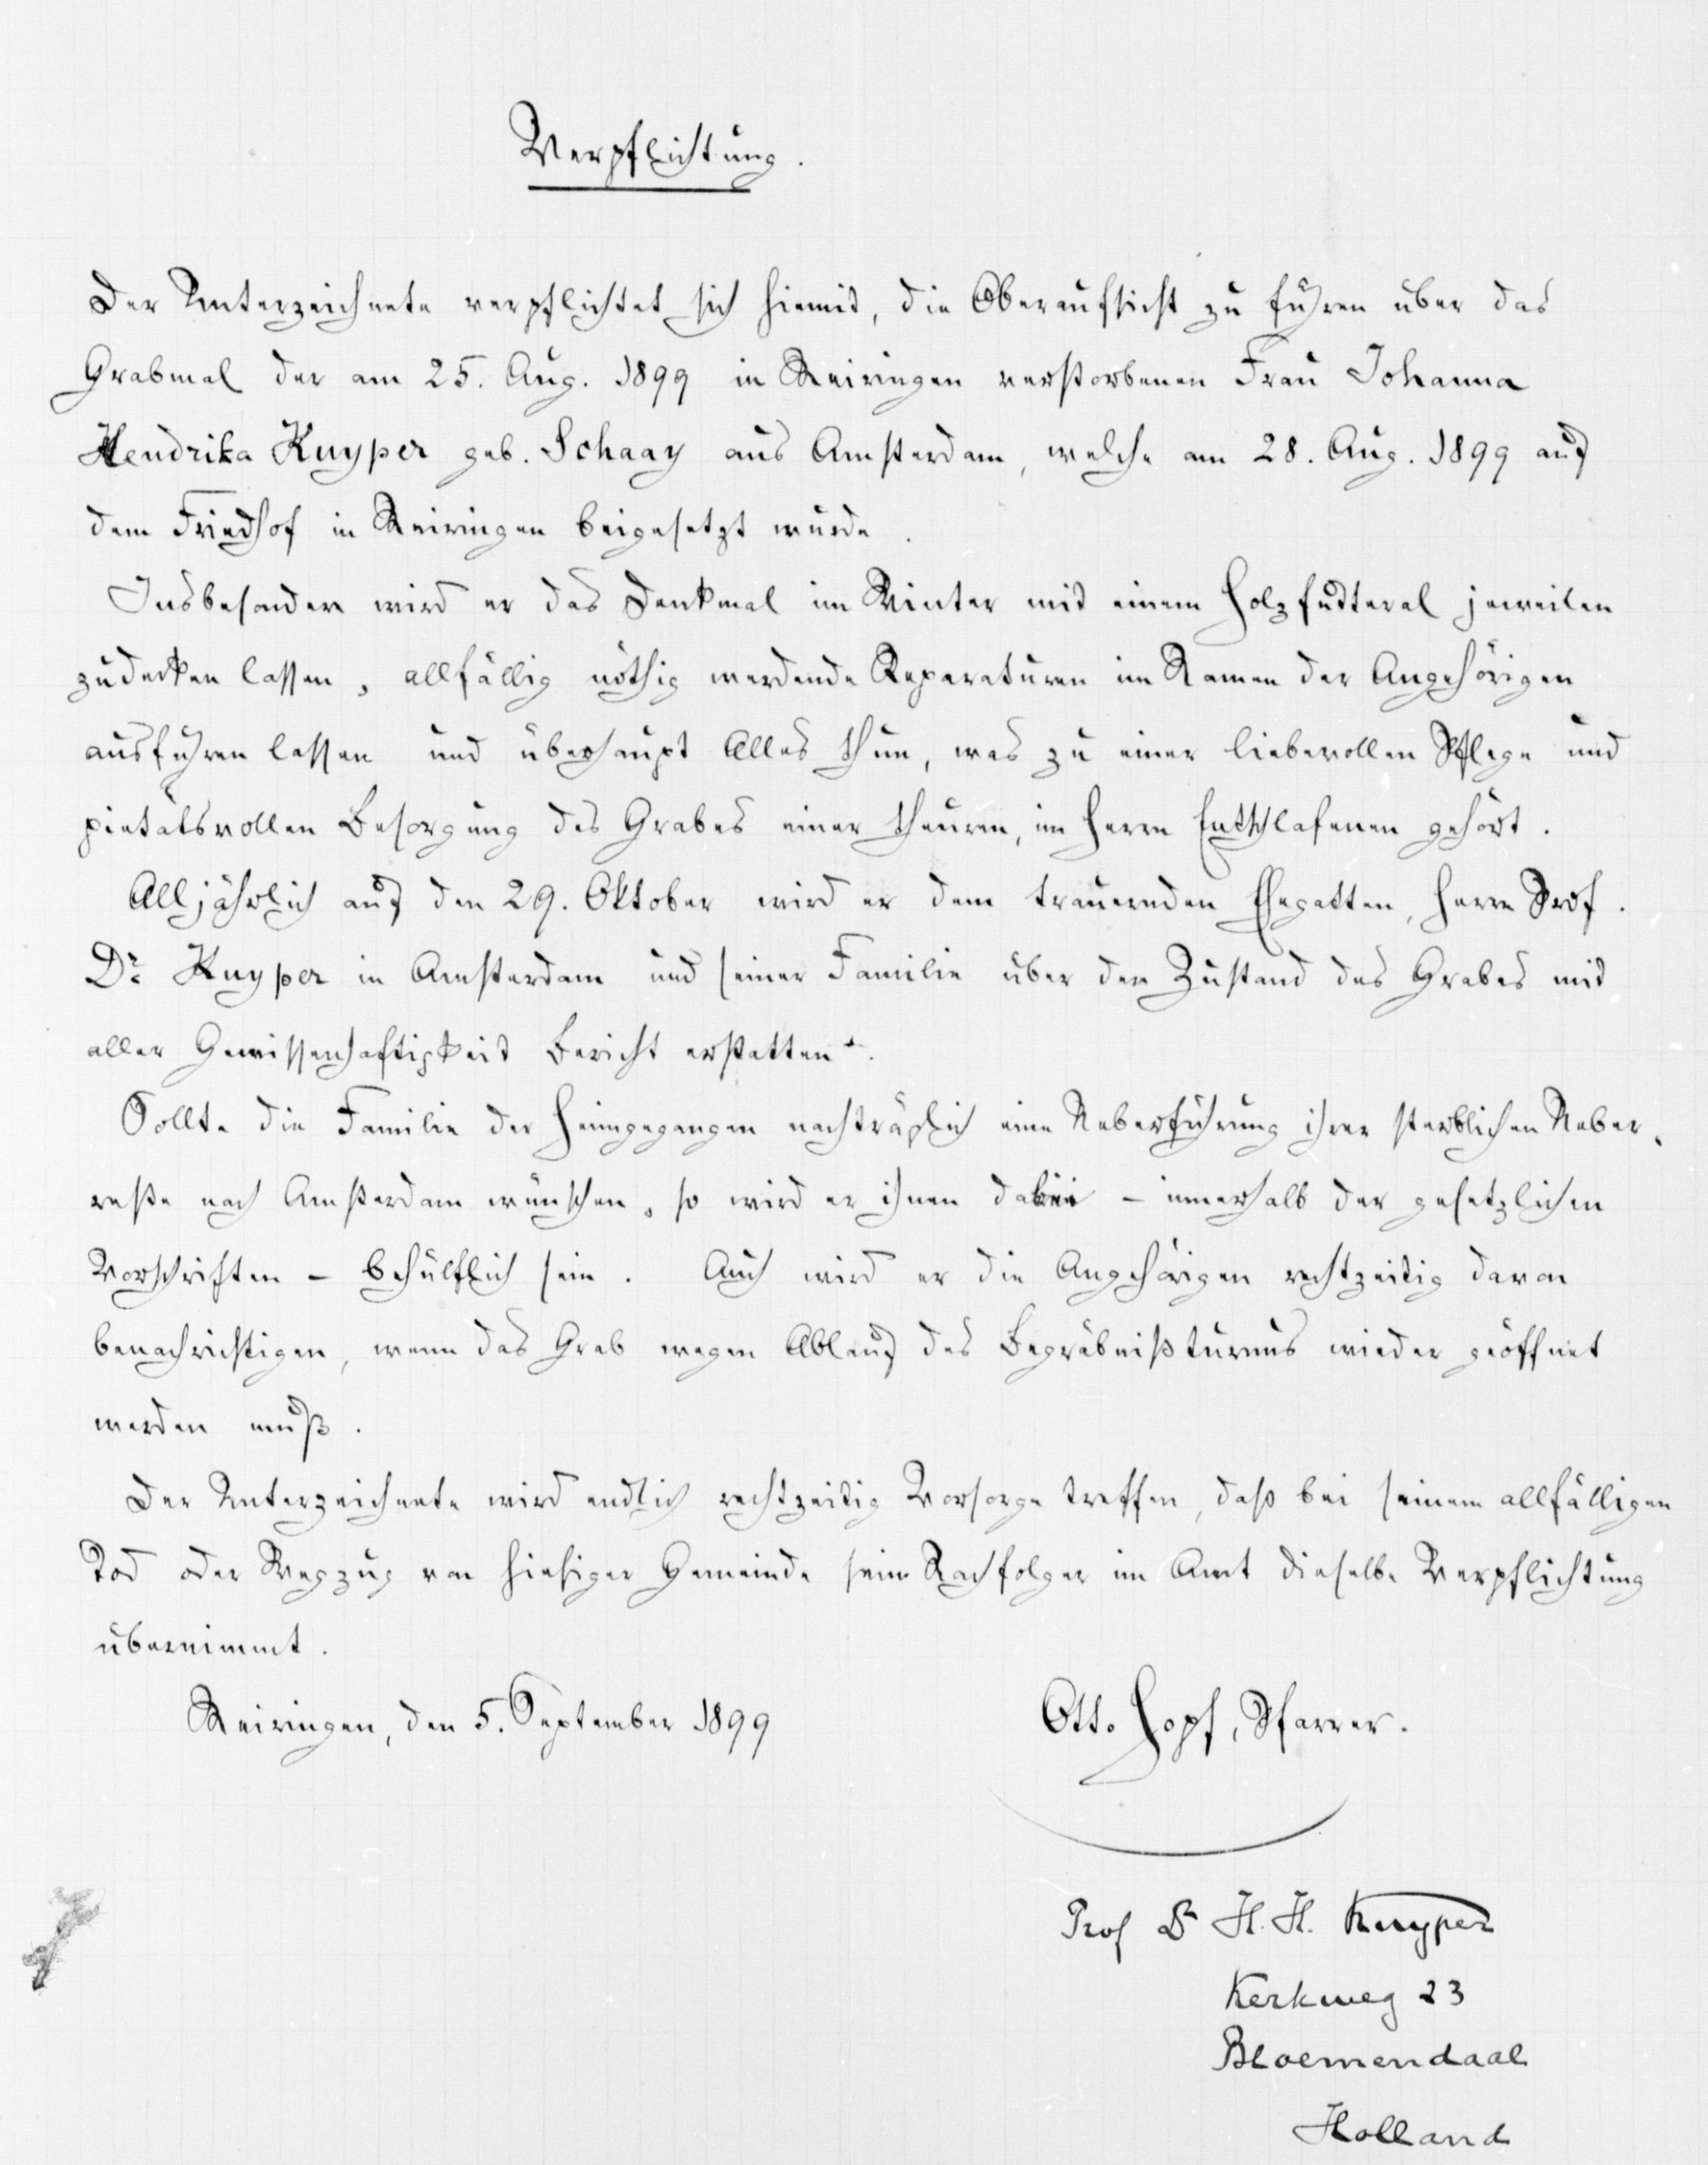 Verpflichtung.
Der Unterzeichnete verpflichtet sich hiemit, die Oberaufsicht zu führen über das
Grabmal der am 25. Aug. 1899 in Meiringen verstorbenen Frau Johanna
Hendrika Kuyper geb. Schaay aus Amsterdam, welche am 28. Aug. 1899 auf
dem Friedhof in Meiringen beigesetzt wurde.
Insbesondere wird er das Denkmal im Winter mit einem Holzfutteral jeweilen
zudecken lassen, allfällig nöthig werdende Reparaturen im Namen der Angehörigen
ausführen lassen und überhaupt Alles thun, was zu einer liebevollen Pflege und
pietätsvollen Besorgung des Grabes einer theuren, im Herrn Entschlafenen gehört.
Alljährlich auf den 29. Oktober wird er dem trauernden Ehegatten, Herrn Prof.
Dr Kuyper in Amsterdam und seiner Familie über den Zustand des Grabes mit
aller Gewissenhaftigkeit Bericht erstatten.
Sollte die Familie der Heimgegangen nachträglich eine Ueberführung ihrer sterblichen Ueber-
reste nach Amsterdam wünschen, so wird er ihnen dabei – innerhalb der gesetzlichen
Vorschriften – behülflich sein. Auch wird er die Angehörigen rechtzeitig davon
benachrichtigen, wenn das Grab wegen Ablauf des Begräbnißturnus wieder geöffnet
werden muß.
Der Unterzeichnete wird endlich rechtzeitig Vorsorge treffen, daß bei seinem allfälligen
Tod oder Wegzug von hiesiger Gemeinde sein Nachfolger im Amt dieselbe Verpflichtung
übernimmt.
Meiringen, den 5. September 1899
Otto Hopf, Pfarrer.
Prof Dr H. H. Kuyper
Kerkweg 23
Bloemendaal
Holland